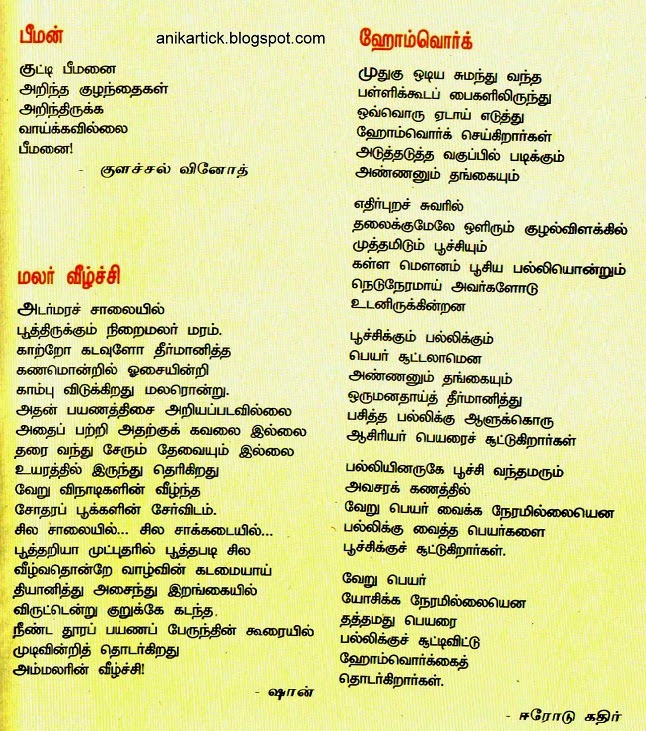 பீமன்
anikartick.blogspot.com
குட்டி பீமனை
அறிந்த குழந்தைகள்
அறிந்திருக்க
வாய்க்கவில்லை
பீமனை!
- குளச்சல் வினோத்
மலர் வீழ்ச்சி
அடர்மரச் சாலையில்
பூத்திருக்கும் நிறைமலர் மரம்.
காற்றோ கடவுளோ தீர்மானித்த
கணமொன்றில் ஓசையின்றி
காம்பு விடுக்கிறது மலரொன்று.
அதன் பயணத்திசை அறியப்படவில்லை
அதைப் பற்றி அதற்குக் கவலை இல்லை
தரை வந்து சேரும் தேவையும் இல்லை
உயரத்தில் இருந்து தெரிகிறது
வேறு விநாடிகளின் வீழ்ந்த
சோதரப் பூக்களின் சேர்விடம்.
சில சாலையில்... சில சாக்கடையில்...
பூத்தறியா முட்புதரில் பூத்தபடி சில
வீழ்வதொன்றே வாழ்வின் கடமையாய்
தியானித்து அசைந்து இறங்கையில்
விருட்டென்று குறுக்கே கடந்த
நீண்ட தூரப் பயணப் பேருந்தின் கூரையில்
முடிவின்றித் தொடர்கிறது
அம்மலரின் வீழ்ச்சி!
- ஷான்
ஹோம்வொர்க்
முதுகு ஒடிய சுமந்து வந்த
பள்ளிக்கூடப் பைகளிலிருந்து
ஒவ்வொரு ஏடாய் எடுத்து
ஹோம்வொர்க் செய்கிறார்கள்
அடுத்தடுத்த வகுப்பில் படிக்கும்
அண்ணனும் தங்கையும்
எதிர்புறச் சுவரில்
தலைக்குமேலே ஒளிரும் குழல்விளக்கில்
முத்தமிடும் பூச்சியும்
கள்ள மௌனம் பூசிய பல்லியொன்றும்
நெடுநேரமாய் அவர்களோடு
உடனிருக்கின்றன
பூச்சிக்கும் பல்லிக்கும்
பெயர் சூட்டலாமென
அண்ணனும் தங்கையும்
ஒருமனதாய்த் தீர்மானித்து
பசித்த பல்லிக்கு ஆளுக்கொரு
ஆசிரியர் பெயரைச் சூட்டுகிறார்கள்
பல்லியினருகே பூச்சி வந்தமரும்
அவசரக் கணத்தில்
வேறு பெயர் வைக்க நேரமில்லையென
பல்லிக்கு வைத்த பெயர்களை
பூச்சிக்குச் சூட்டுகிறார்கள்.
வேறு பெயர்
யோசிக்க நேரமில்லையென
தத்தமது பெயரை
பல்லிக்குச் சூட்டிவிட்டு
ஹோம்வொர்க்கைத்
தொடர்கிறார்கள்.
- ஈரோடு கதிர்